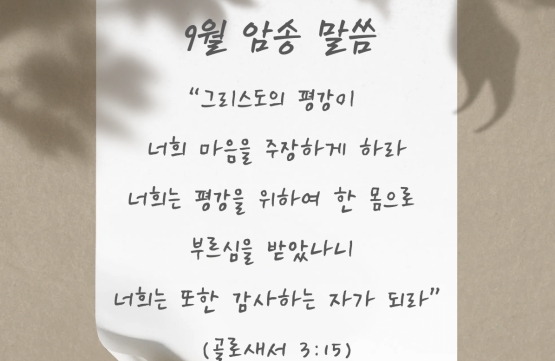 9월 암송 말씀
“그리스도의 평강이
너희 마음을 주장하게 하라
너희는 평강을 위하여 한 몸으로
부르심을 받았나니
너희는 또한 감사하는 자가 되라”
(골로새서 3:15)